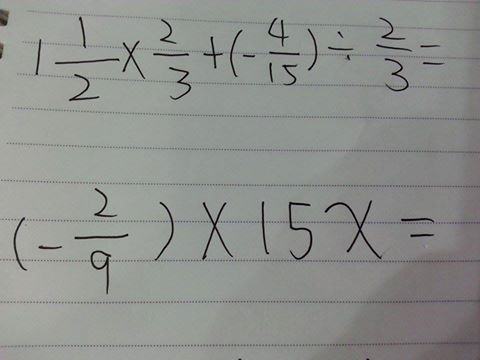 1 1/2 × 2/3 + (- 4/15) ÷ 2/3 =
(- 2/9) × 15x =